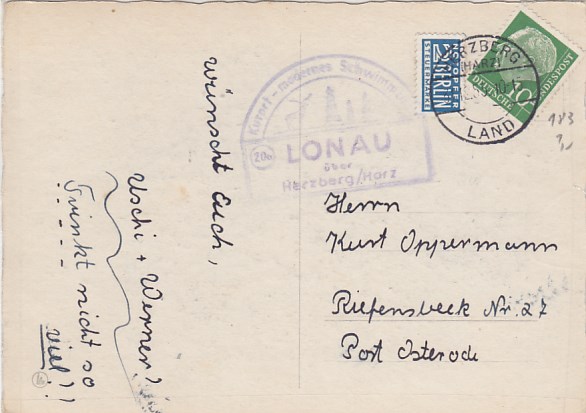 wünscht Euch,
Uschi + Werner!
Trinkt nicht so
viel!!
Kurort - modernes
20b
LONAU
über
Herzberg/Harz
NOTOPFER
2 BERLIN
STEUERMARKE
HERZBERG
(HARZ)
LAND
10
DEUTSCHE BUNDESPOST
183
Herrn
Kurt Oppermann
Riefensbeek Nr. 27
Post Osterode